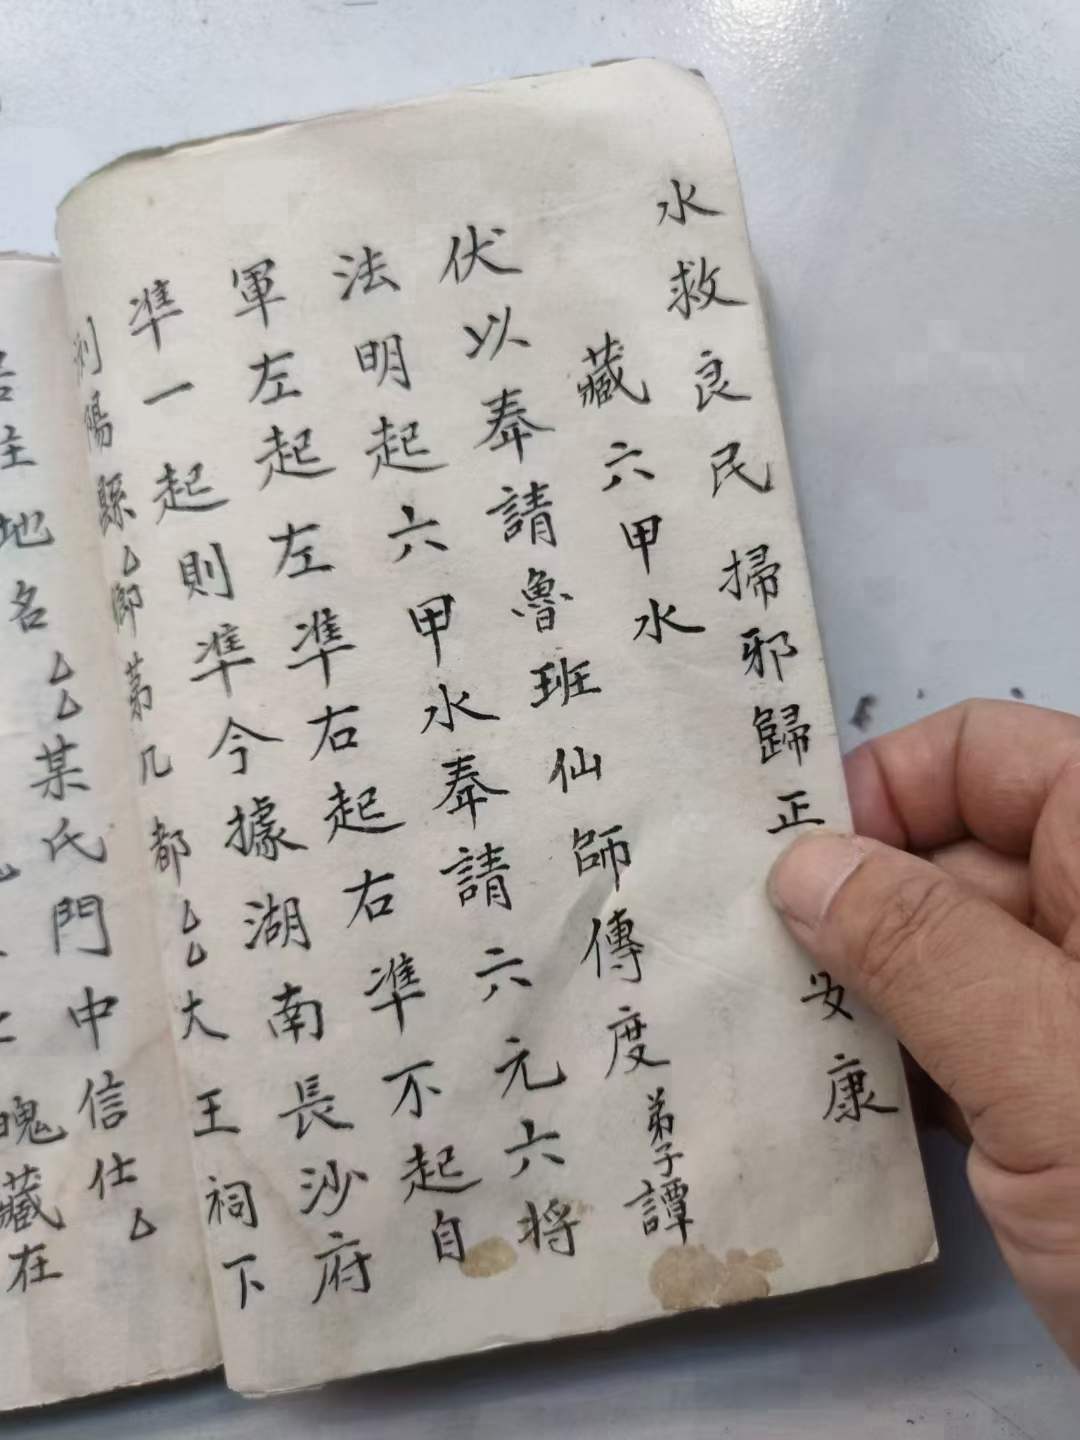 水救良民掃邪歸正 安康
藏六甲水
伏以奉請魯班仙師傳度弟子譚
法明起六甲水奉請六元六将
軍左起左準右起右準不起自
準一起則準今據湖南長沙府
瀏陽縣厶鄉第几都厶厶大王祠下
地名厶厶某氏門中信仕厶
魄藏在